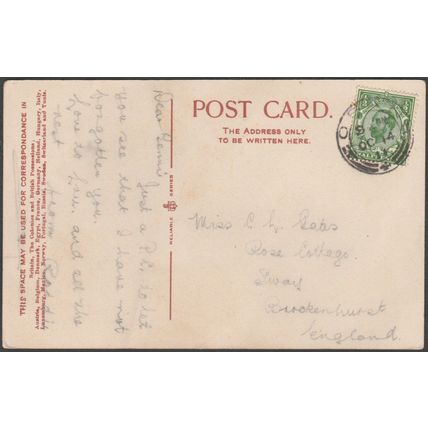 THIS SPACE MAY BE USED FOR CORRESPONDENCE IN
Britain, The Colonies and British Possessions
Austria, Belgium, Denmark, Egypt, France, Germany, Holland, Hungary, Italy,
Luxemburg, Mexico, Norway, Portugal, Russia, Sweden, Switzerland and Tunis.
Dear
Just a P.C. to let
you see that I have not
forgotten you.
Love to and all the
rest
from
RELIABLE SERIES
POST CARD.
THE ADDRESS ONLY
TO BE WRITTEN HERE.
Miss C. L.
Rose Cottage
Sway
Brockenhurst
England.